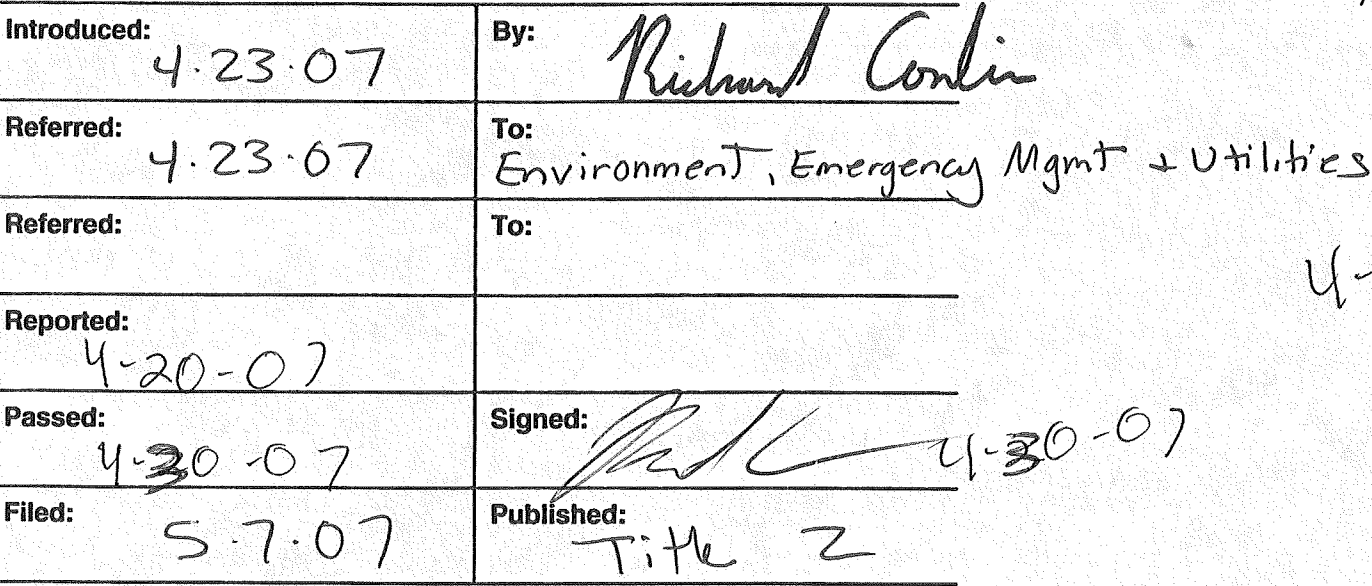 Introduced: 4.23.07
By: Richard Conlin
Referred: 4.23.07
To: Environment, Emergency Mgmt + Utilities
Referred:
To:
4-
Reported: 4-20-07
Passed: 4-30-07
Signed: 4-30-07
Filed: 5.7.07
Published: Title 2